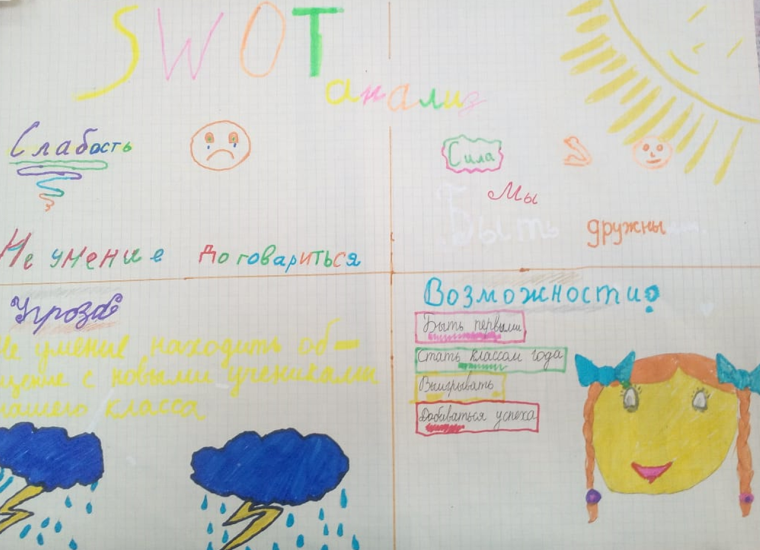 SWOT
анализ
Слабость
Не умение договариться
Сила
Мы
Быть дружны
Угроза
Не умение находить об-
щение с новыми учениками
нашего класса
Возможности:
Быть первыми
Стать классом года
Выигрывать
Добиваться успеха